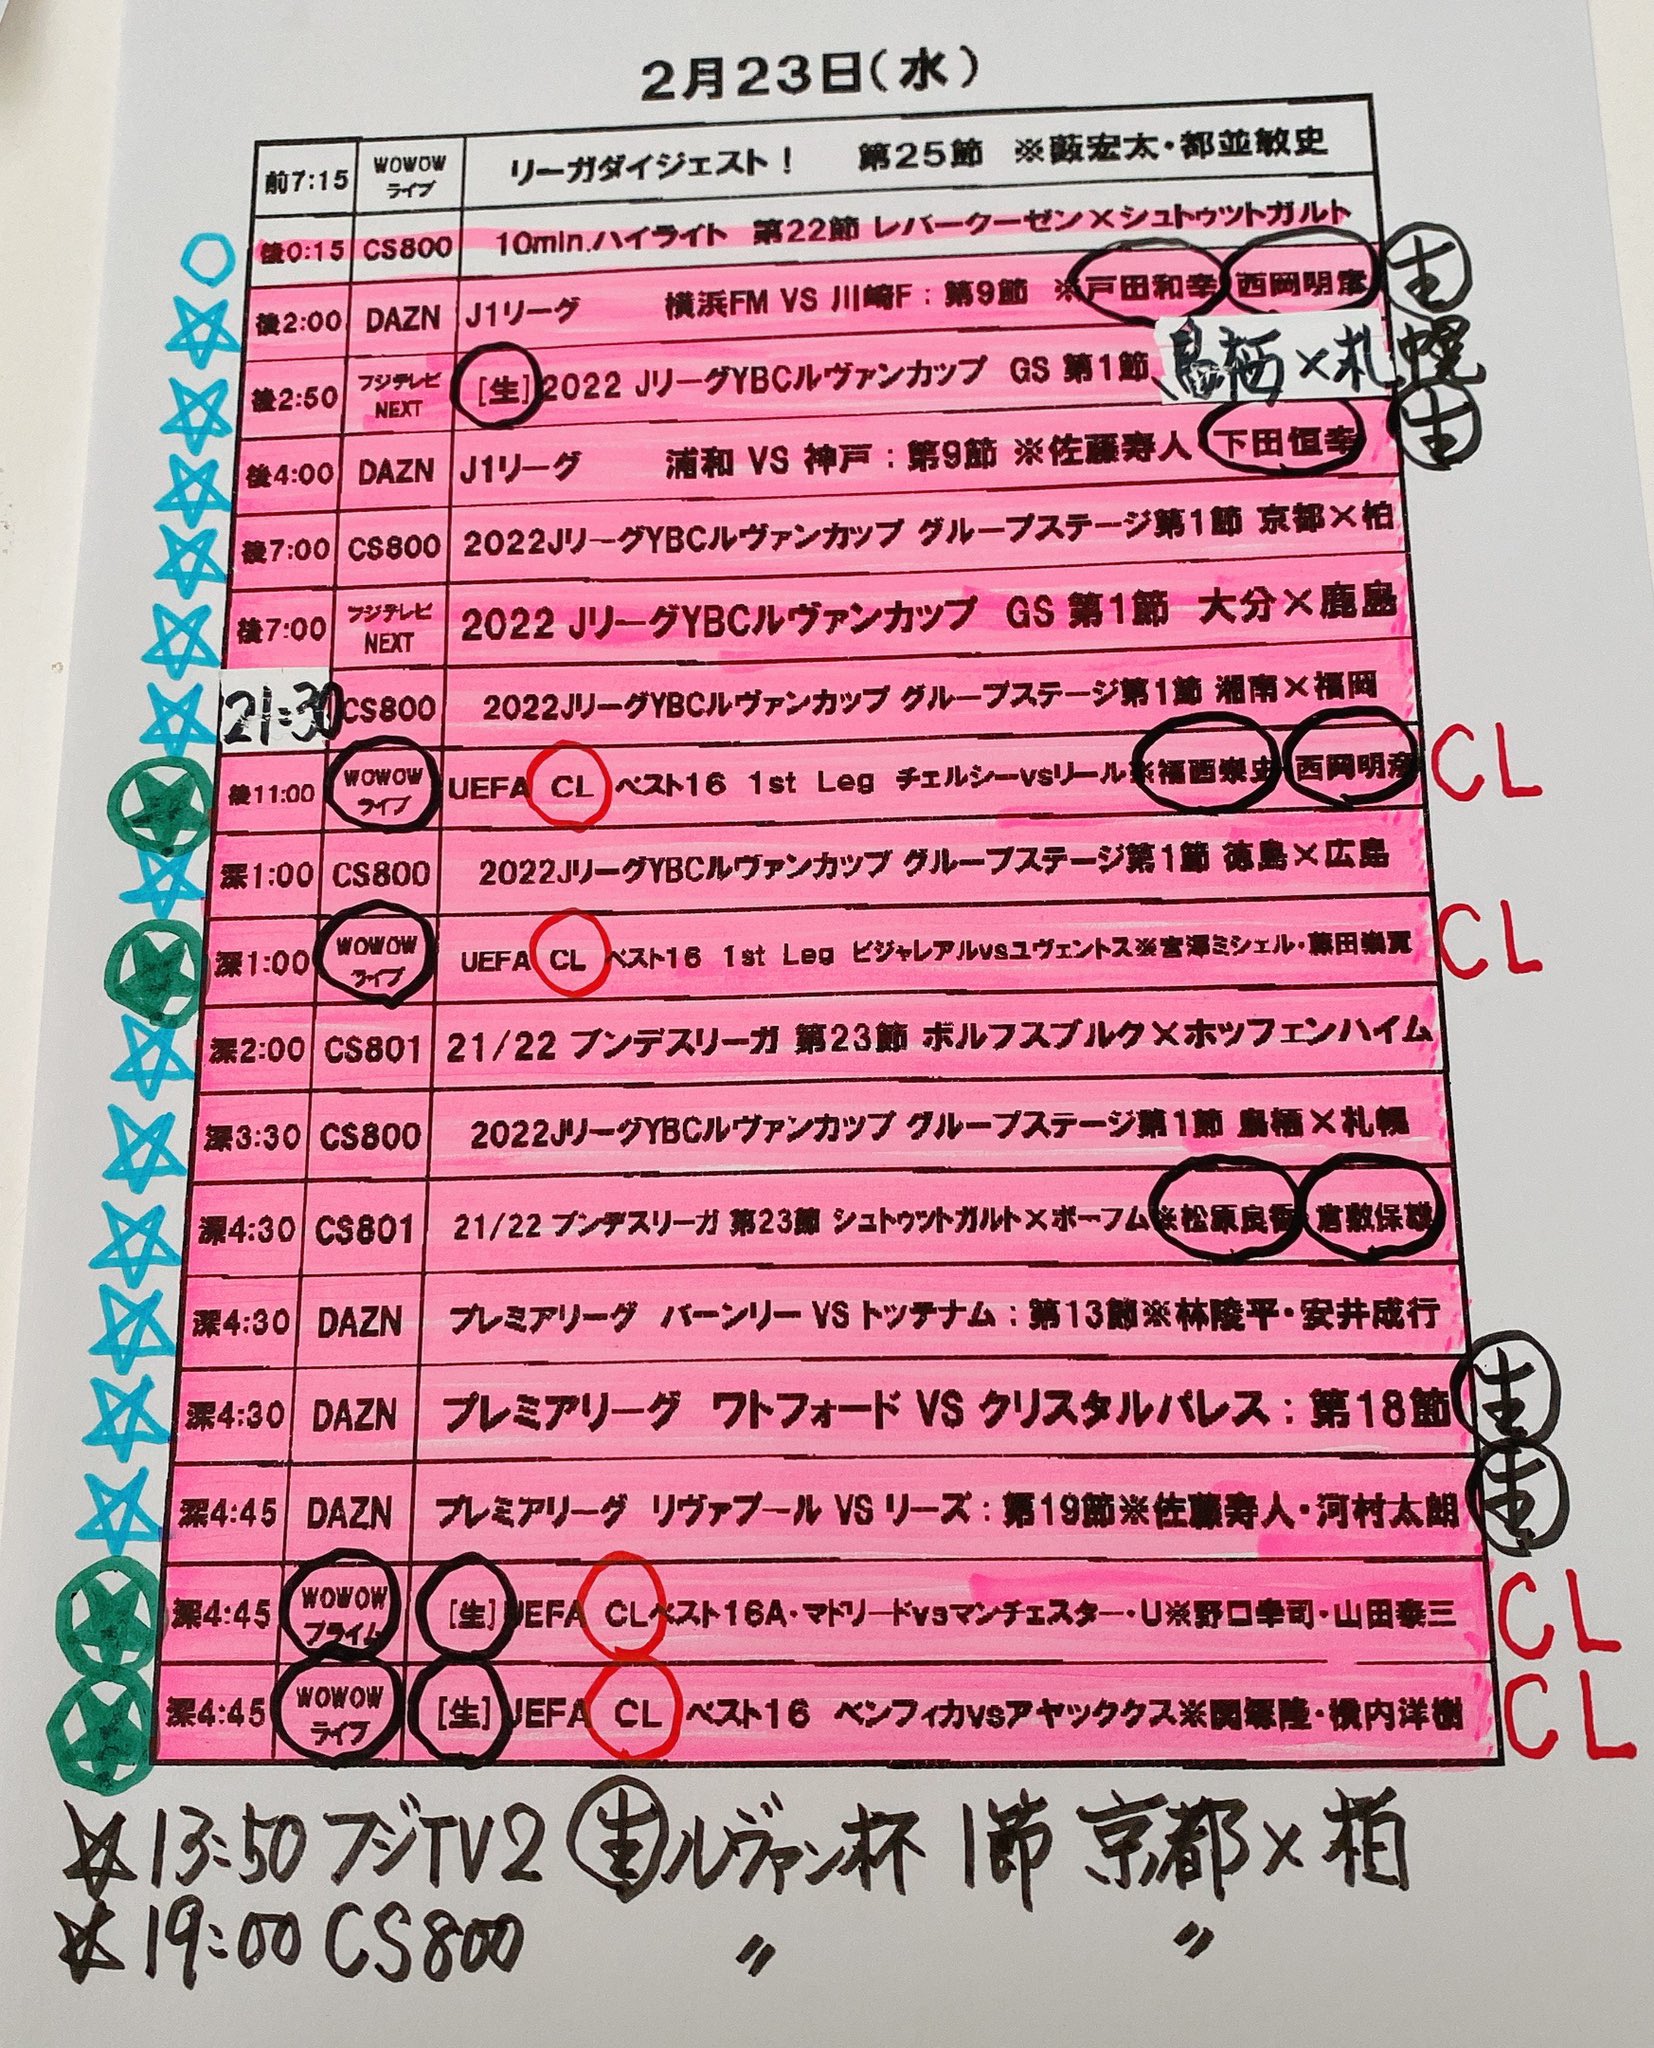 2月23日(水)
前7:15 WOWOWライブ リーガダイジェスト! 第25節 ※藪宏太・都並敏史
後0:15 CS800 10min.ハイライト 第22節 レバークーゼン×シュトゥットガルト
後2:00 DAZN J1リーグ 横浜FM VS 川崎F:第9節 ※戸田和幸 西岡明彦 生
後2:50 フジテレビNEXT [生]2022 JリーグYBCルヴァンカップ GS 第1節 鳥栖×札幌
後4:00 DAZN J1リーグ 浦和 VS 神戸:第9節 ※佐藤寿人 下田恒幸 生
後7:00 CS800 2022JリーグYBCルヴァンカップ グループステージ第1節 京都×柏
後7:00 フジテレビNEXT 2022 JリーグYBCルヴァンカップ GS 第1節 大分×鹿島
21:30 CS800 2022JリーグYBCルヴァンカップ グループステージ第1節 湘南×福岡
後11:00 WOWOWライブ UEFA CL ベスト16 1st Leg チェルシーvsリール※福西崇史 西岡明彦 CL
深1:00 CS800 2022JリーグYBCルヴァンカップ グループステージ第1節 徳島×広島
深1:00 WOWOWライブ UEFA CL ベスト16 1st Leg ビジャレアルvsユヴェントス※宮澤ミシェル・藤田崇寛 CL
深2:00 CS801 21/22 ブンデスリーガ 第23節 ボルフスブルク×ホッフェンハイム
深3:30 CS800 2022JリーグYBCルヴァンカップ グループステージ第1節 鳥栖×札幌
深4:30 CS801 21/22 ブンデスリーガ 第23節 シュトゥットガルト×ボーフム※松原良香 倉敷保雄
深4:30 DAZN プレミアリーグ バーンリー VS トッテナム:第13節※林陵平・安井成行
深4:30 DAZN プレミアリーグ ワトフォード VS クリスタルパレス:第18節 生
深4:45 DAZN プレミアリーグ リヴァプール VS リーズ:第19節※佐藤寿人・河村太朗 生
深4:45 WOWOWプライム [生]UEFA CLベスト16A・マドリードvsマンチェスター・U※野口幸司・山田泰三 CL
深4:45 WOWOWライブ [生]UEFA CL ベスト16 ベンフィカvsアヤッククス※関塚隆・横内洋樹 CL
☆13:50 フジTV2 生 ルヴァン杯 1節 京都×柏
☆19:00 CS800 〃 〃